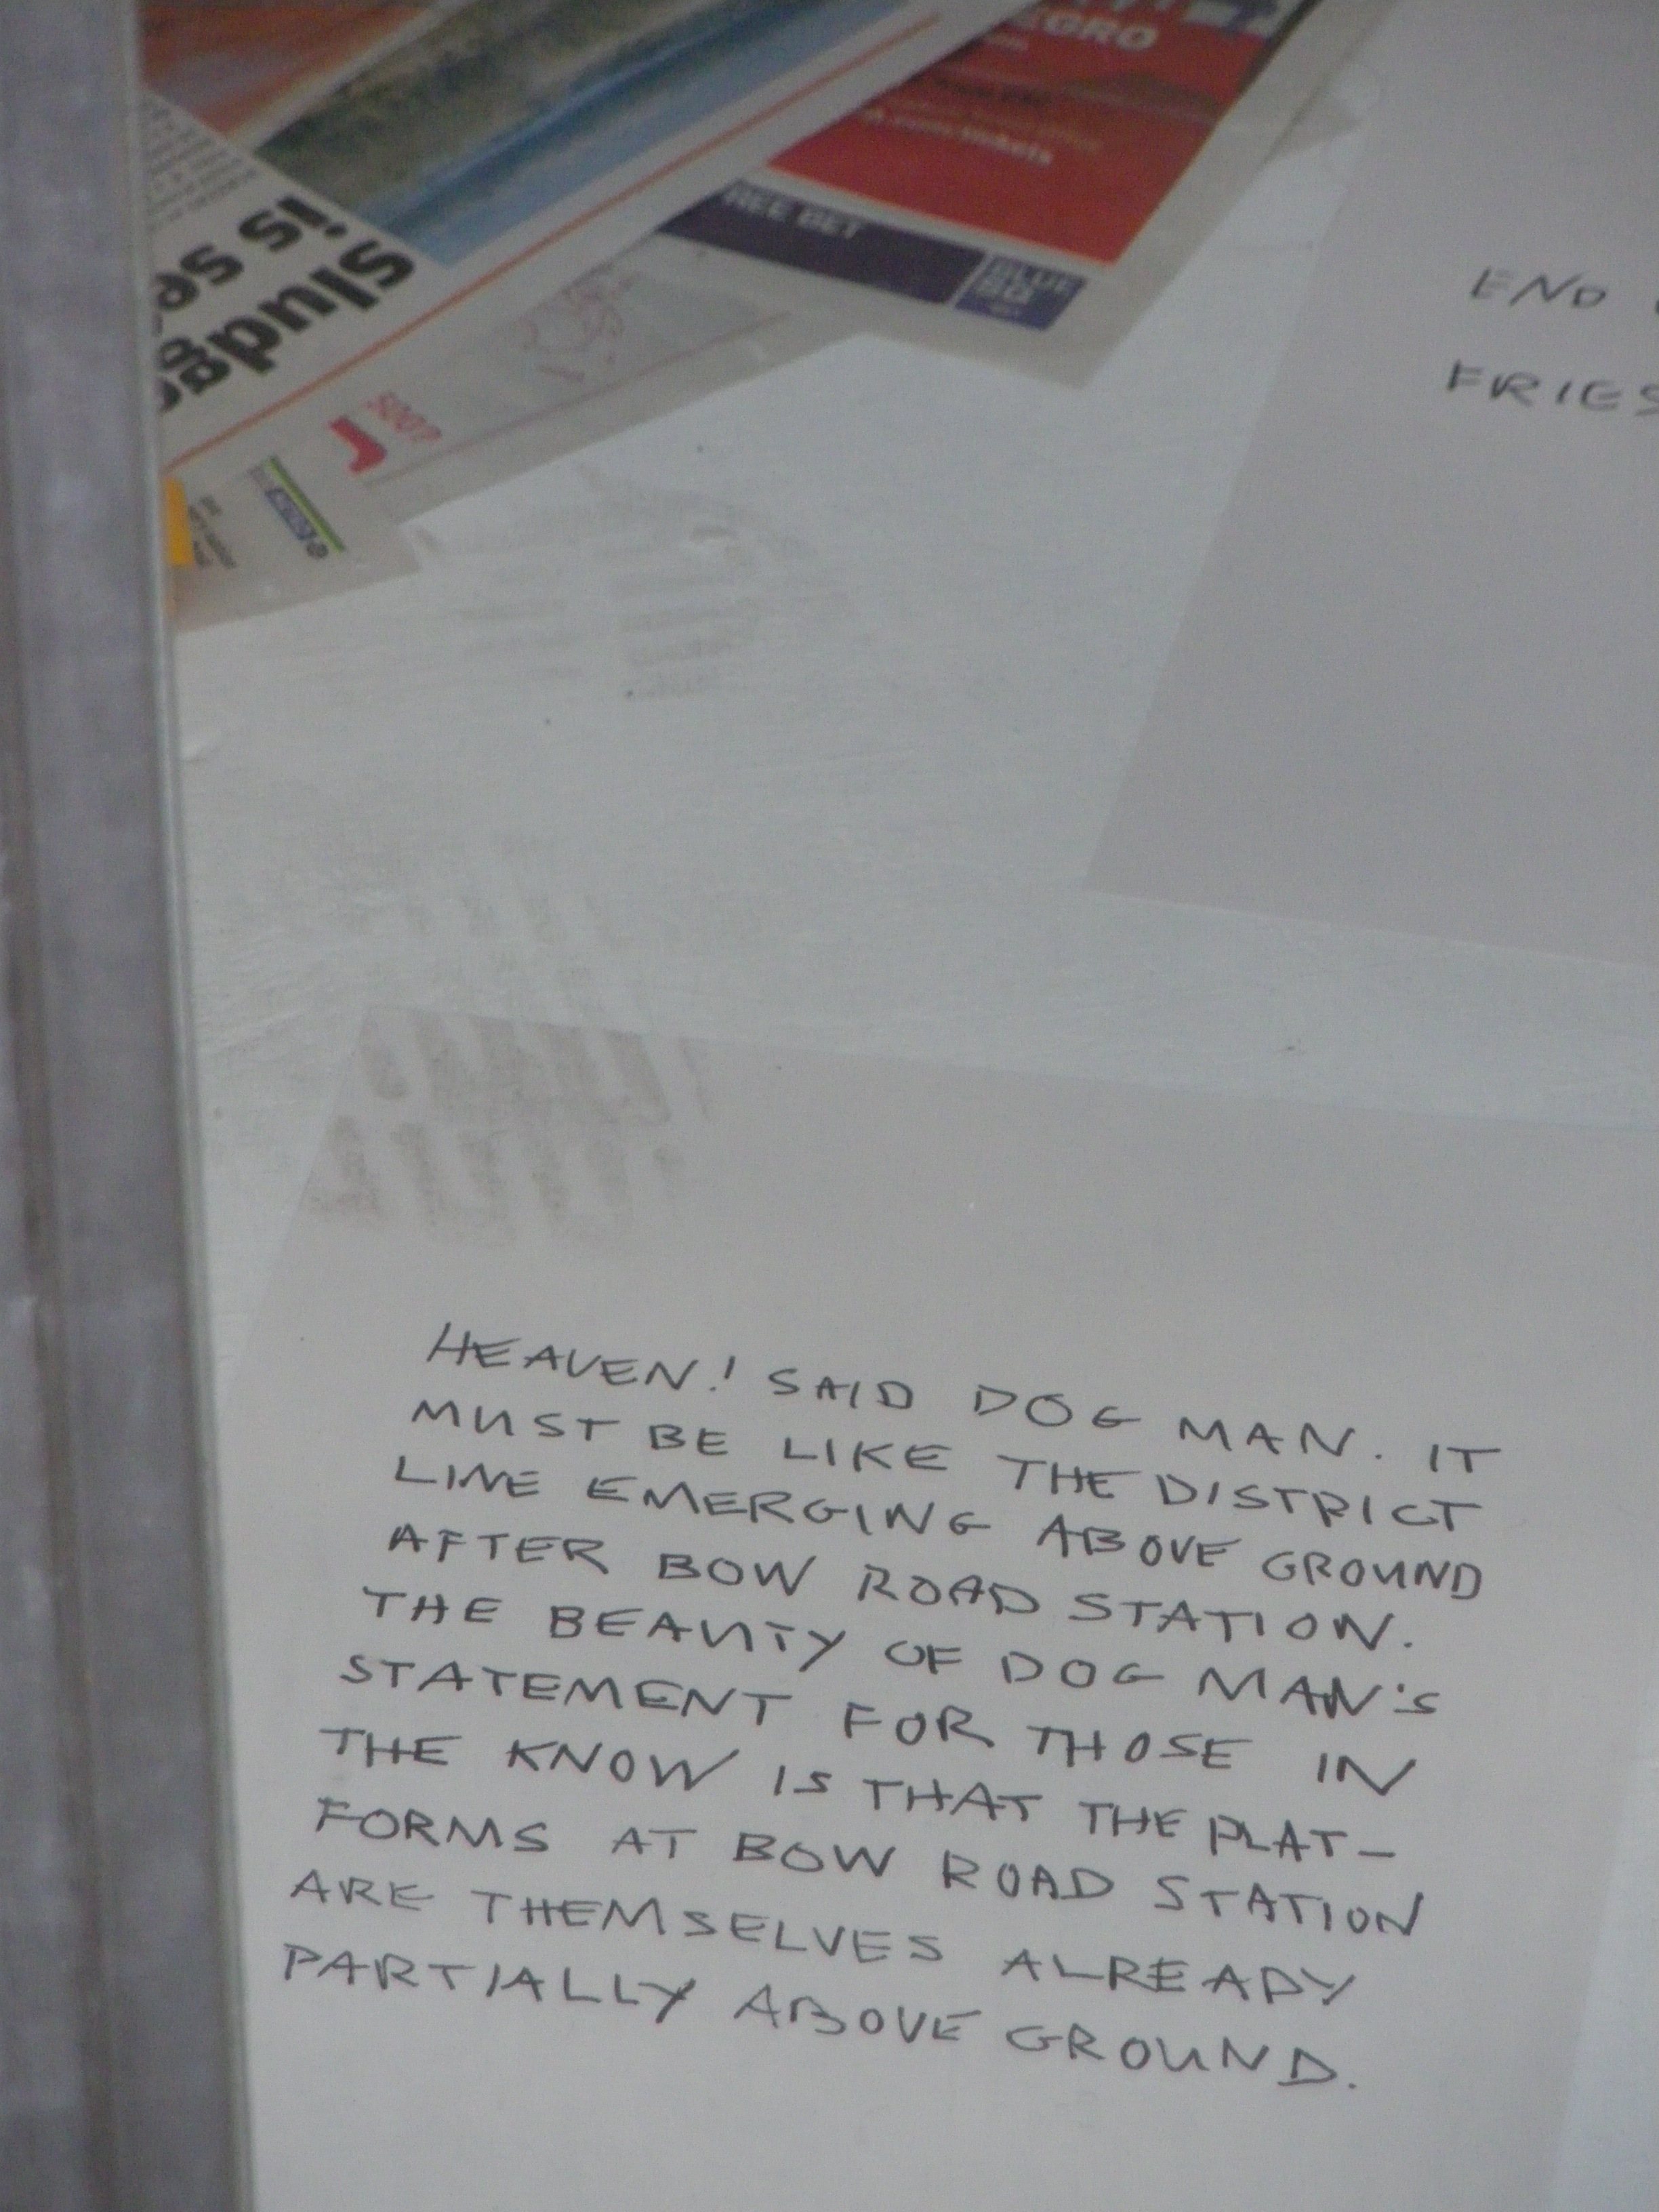 EGRO
REE BET
BLUE
SQ
sludg
is se
END
FRIES
HEAVEN! SAID DOG MAN. IT
MUST BE LIKE THE DISTRICT
LINE EMERGING ABOVE GROUND
AFTER BOW ROAD STATION.
THE BEAUTY OF DOG MAN'S
STATEMENT FOR THOSE IN
THE KNOW IS THAT THE PLAT-
FORMS AT BOW ROAD STATION
ARE THEMSELVES ALREADY
PARTIALLY ABOVE GROUND.